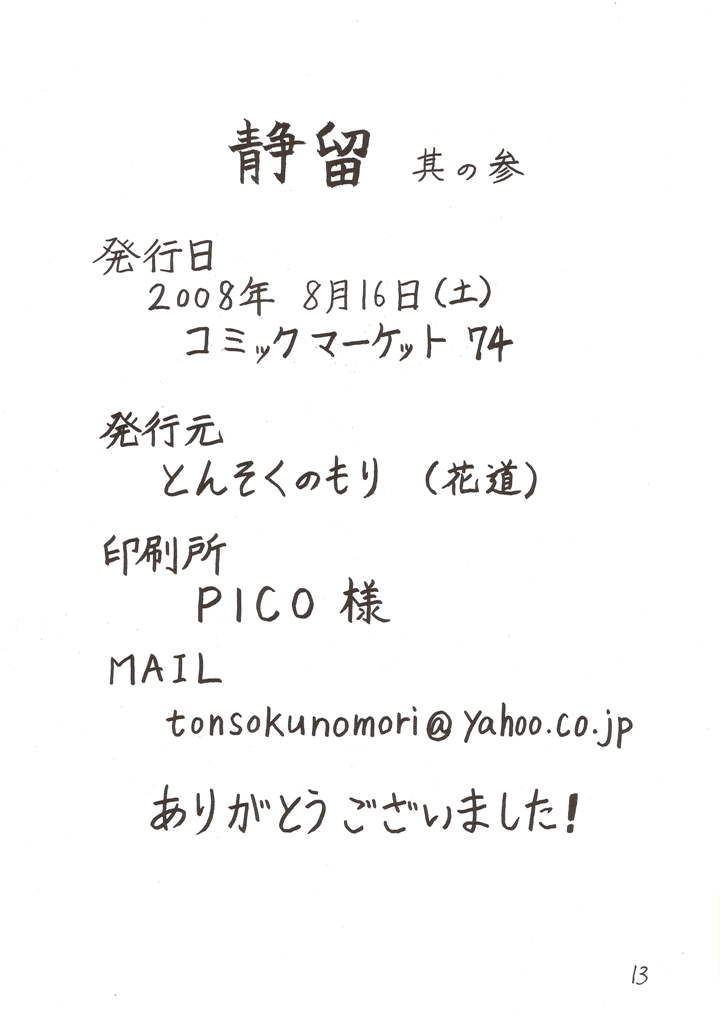 静留 其の参
発行日
2008年 8月16日(土)
コミックマーケット 74
発行元
とんそくのもり (花道)
印刷所
PICO 様
MAIL
tonsokunomori@yahoo.co.jp
ありがとうございました!
13